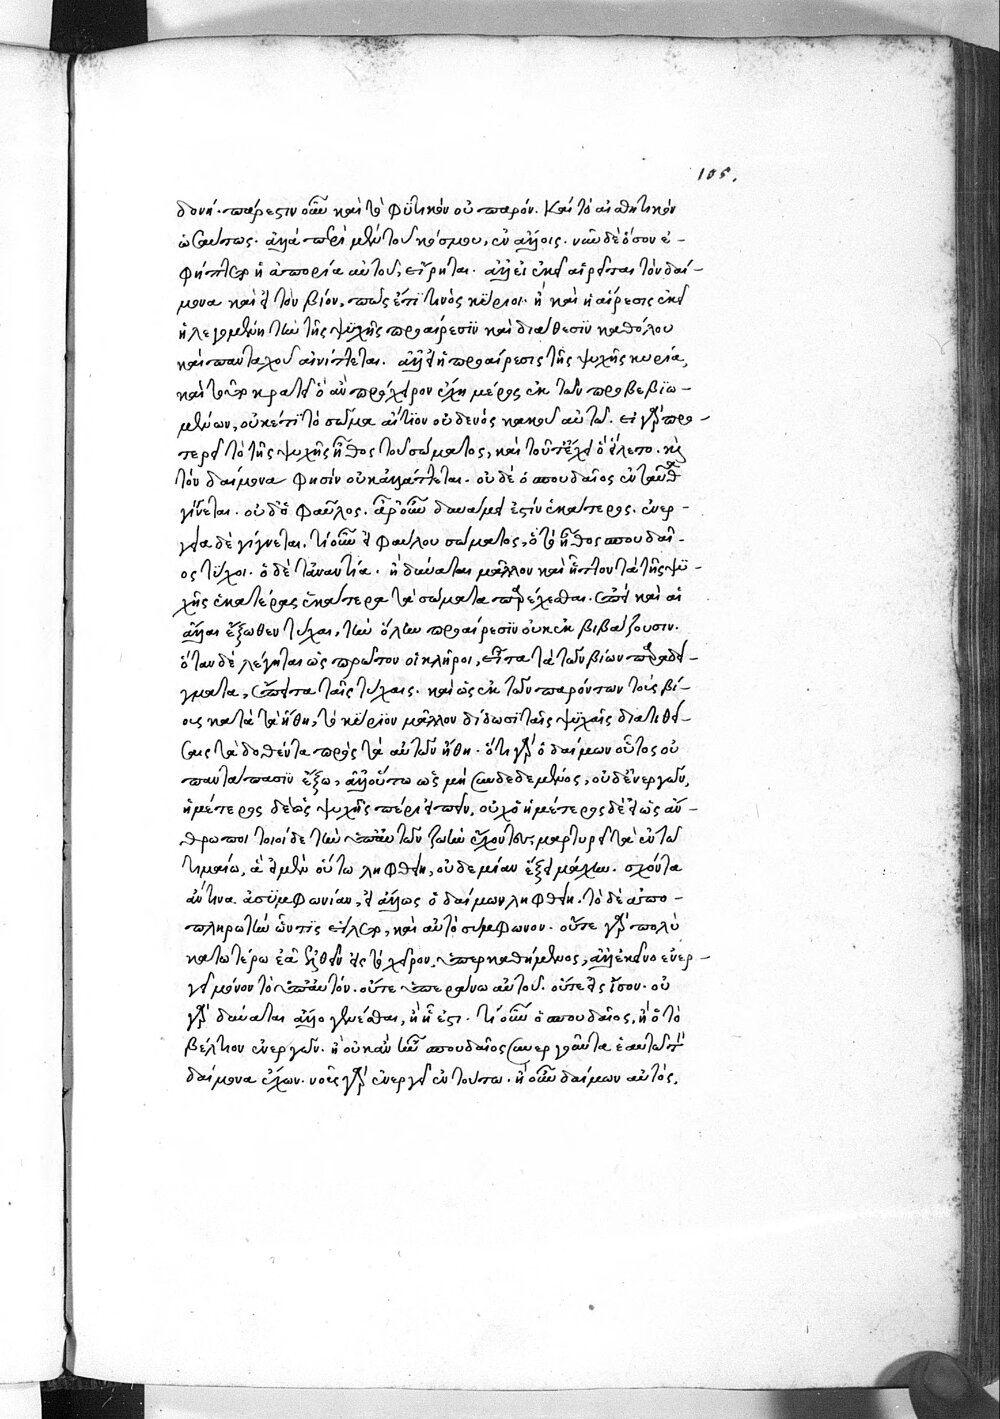 105.
δονή. πάρεστιν οὖν καὶ τὸ φϋτικὸν οὐ παρόν. Καὶ τὸ αἰσθητικὸν
ὡσαύτως. ἀλλὰ περὶ μὲν τοῦ κόσμου, ἐν ἄλλοις. νῦν δὲ ὅσον ἐ-
φήπτετο ἡ ἀπορία αὐτοῦ, εἴρηται. ἀλλ' εἰ ἐκεῖ αἱρεῖται τὸν δαί-
μονα καὶ εἰ τὸν βίον, πῶς ἔτι τινὸς κύριοι. ἢ καὶ ἡ αἵρεσις ἐκεῖ
ἡ λεγομένη τὴν τῆς ψϋχῆς προαίρεσϊν καὶ διάθεσϊν καθόλου
καὶ πανταχοῦ αἰνίττεται. ἀλλ' εἰ ἡ προαίρεσις τῆς ψυχῆς κυρία,
καὶ τοῦτο κρατεῖ ὃ ἂν πρόχειρον ἔχη μέρος ἐκ τῶν προβεβϊω-
μένων, οὐκέτϊ τὸ σῶμα αἴτϊον οὐδενὸς κακοῦ αὐτῶ. εἰ γὰρ πρό-
τερον τὸ τῆς ψυχῆς ἦθος τοῦ σώματος, καὶ τοῦτ' ἔχει ὃ εἵλετο. καὶ
τὸν δαίμονα φησὶν οὐκ ἀλλάττεται. οὐδὲ ὁ σπουδαῖος ἐνταῦθα
γίνεται. οὐδ' ὁ φαῦλος. ἆρ' οὖν δυνάμει ἐστὶν ἑκάτερος. ἐνερ-
γεία δὲ γίγνεται. τί οὖν εἰ φαύλου σώματος, ὁ τὸ ἦθος σπουδαῖ-
ος τύχοι. ὁ δὲ τἀναντία. ἢ δύναται μᾶλλον καὶ ἧττον τὰ τῆς ψϋ-
χῆς ἑκατέρας ἑκάτερα τὰ σώματα παρέχεσθαι. ἐπεὶ καὶ αἱ
ἄλλαι ἔξωθεν τύχαι, τὴν ὅλην προαίρεσϊν οὐκ ἐκβιβάζουσιν.
ὅταν δὲ λέγηται ὡς πρῶτον οἱ κλῆροι, εἶτα τὰ τῶν βίων παραδεί-
γματα, ἔπειτα ταῖς τύχαις. καὶ ὡς ἐκ τῶν παρόντων τοὺς βί-
ους κατὰ τὰ ἤθη, τὸ κύριον μᾶλλον δίδωσϊ ταῖς ψϋχαῖς διατιθεί-
σαις τὰ δοθέντα πρὸς τὰ αὐτῶν ἤθη. ὅτι γὰρ ὁ δαίμων οὗτος οὐ
πανταπασϊν ἔξω, ἀλλ' οὕτω ὡς μὴ συνδεδεμένος, οὐδ' ἐνεργῶν,
ἡμέτερος δὲ ὡς ψυχῆς πέρι εἰπεῖν, οὐχ ὁ ἡμέτερος δὲ εἰ ὡς ἄν-
θρωποι τοιοίδε τὴν ὑπ' αὐτῶν ζωὴν ἔχοντες, μαρτυρεῖ τὰ ἐν τῶ
τιμαίω, ἃ εἰ μὲν οὕτω ληφθείη, οὐδεμίαν ἕξει μάχην. σχόντα
ἄν τινα ἀσϋμφωνίαν, εἰ ἄλλως ὁ δαίμων ληφθείη. τὸ δὲ ἀπο-
πληρωτὴν ὧν τϊς εἵλετο, καὶ αὐτὸ σύμφωνον. οὔτε γὰρ πολὺ
κατωτέρω ἐᾶ ἐλθεῖν εἰς τὸ χεῖρον, ὑπερκαθήμενος, ἀλλ' ἐκεῖνο ἐνερ-
γεῖ μόνον τὸ ὑπ' αὐτόν. οὔτε ὑπεράνω αὐτοῦ. οὔτε εἰς ἴσον. οὐ
γὰρ δύναται ἄλλο γενέσθαι, ἢ ᾗ ἐστι. τί οὖν ὁ σπουδαῖος, ἢ ὁ τὸ
βέλτιον ἐνεργῶν. ἢ οὐκ ἂν ἦν σπουδαῖος συνεργοῦντα ἑαυτῶ τὸν
δαίμονα ἔχων. νοῦς γὰρ ἐνεργεῖ ἐν τούτω. ἢ οὖν δαίμων αὐτὸς.